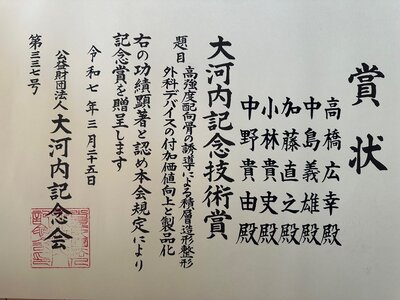 賞状
高橋広幸殿
中島義雄殿
加藤直之殿
小林貴史殿
中野貴由殿
大河内記念技術賞
題目
高強度配向骨の誘導による積層造形整形
外科デバイスの付加価値向上と製品化
右の功績顕著と認め本会規定により
記念賞を贈呈します
令和七年三月二十五日
公益財団法人 大河内記念会
第三三七号